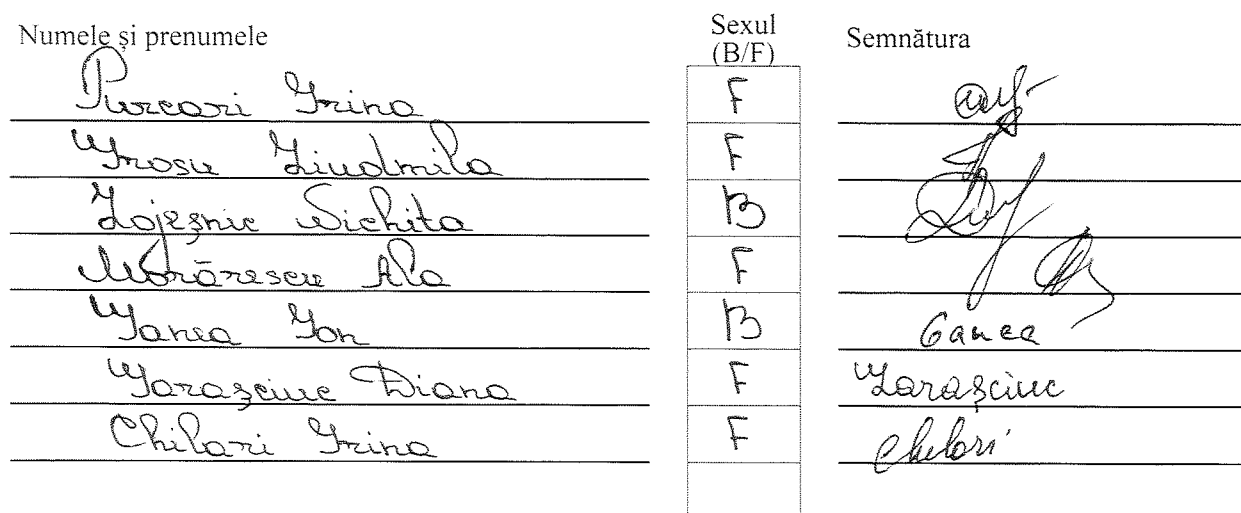 Numele și prenumele Sexul (B/F) Semnătura
Purcari Irina F
Grosu Liudmila F
Lojeșnic Nichita B
Morărescu Ala F
Ganea Ion B Ganea
Garașciuc Diana F Garașciuc
Chilari Irina F Chilari